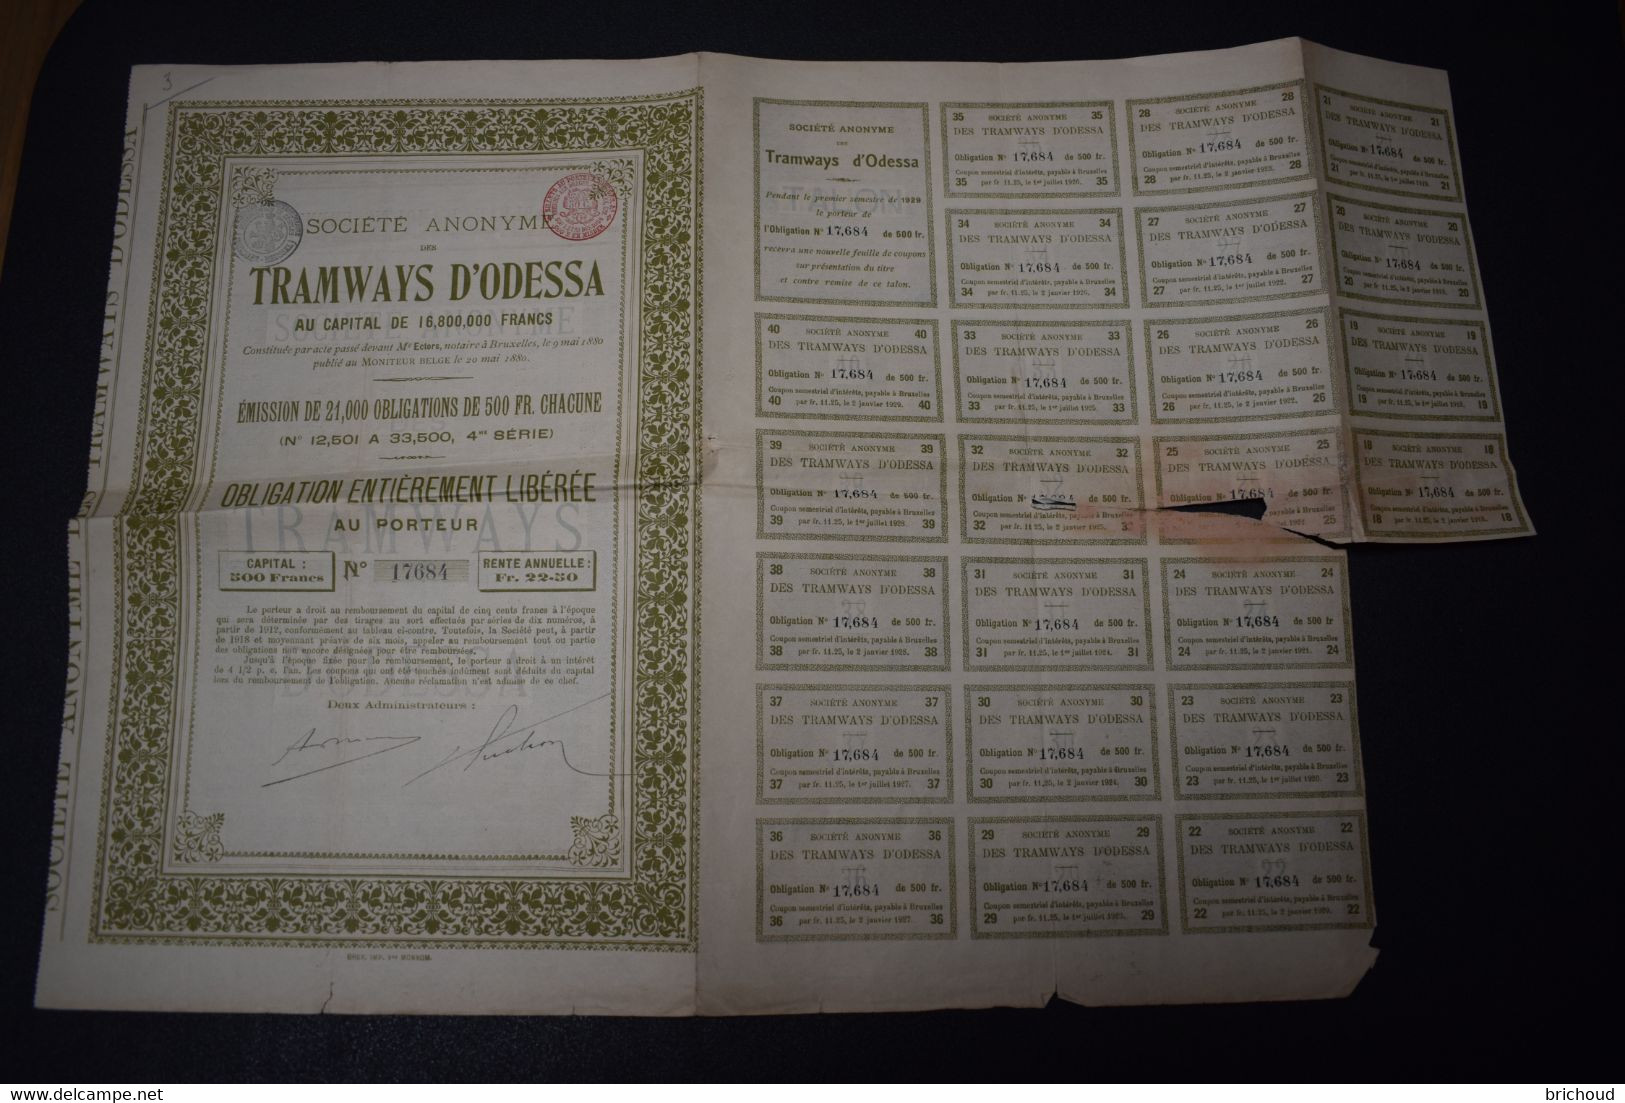 3
SOCIÉTÉ ANONYME DES TRAMWAYS D'ODESSA
SOCIÉTÉ ANONYME
DES
TRAMWAYS D'ODESSA
AU CAPITAL DE 16,800,000 FRANCS
Constituée par acte passé devant Me Ectors, notaire à Bruxelles, le 9 mai 1880
publié au MONITEUR BELGE le 20 mai 1880.
ÉMISSION DE 21,000 OBLIGATIONS DE 500 FR. CHACUNE
(N° 12,501 A 33,500, 4me SÉRIE)
OBLIGATION ENTIÈREMENT LIBÉRÉE
AU PORTEUR
CAPITAL :
500 Francs
N° 17684
RENTE ANNUELLE :
Fr. 22-50
Le porteur a droit au remboursement du capital de cinq cents francs à l'époque
qui sera déterminée par des tirages au sort effectués par séries de dix numéros, à
partir de 1912, conformément au tableau ci-contre. Toutefois, la Société peut, à partir
de 1918 et moyennant préavis de six mois, appeler au remboursement tout ou partie
des obligations non encore désignées pour être remboursées.
Jusqu'à l'époque fixée pour le remboursement, le porteur a droit à un intérêt
de 4 1/2 p. c. l'an. Les coupons qui ont été touchés indûment sont déduits du capital
lors du remboursement de l'obligation. Aucune réclamation n'est admise de ce chef.
Deux Administrateurs :
BRUX. IMP. Vve MONNOM.
SOCIÉTÉ ANONYME
DES
Tramways d'Odessa
Pendant le premier semestre de 1929
le porteur de
l'Obligation N° 17,684 de 500 fr.
recevra une nouvelle feuille de coupons
sur présentation du titre
et contre remise de ce talon.
TALON
40 SOCIÉTÉ ANONYME 40
DES TRAMWAYS D'ODESSA
Obligation N° 17,684 de 500 fr.
Coupon semestriel d'intérêts, payable à Bruxelles
40 par fr. 11.25, le 2 janvier 1929. 40
39 SOCIÉTÉ ANONYME 39
DES TRAMWAYS D'ODESSA
Obligation N° 17,684 de 500 fr.
Coupon semestriel d'intérêts, payable à Bruxelles
39 par fr. 11.25, le 1er juillet 1928. 39
38 SOCIÉTÉ ANONYME 38
DES TRAMWAYS D'ODESSA
Obligation N° 17,684 de 500 fr.
Coupon semestriel d'intérêts, payable à Bruxelles
38 par fr. 11.25, le 2 janvier 1928. 38
37 SOCIÉTÉ ANONYME 37
DES TRAMWAYS D'ODESSA
Obligation N° 17,684 de 500 fr.
Coupon semestriel d'intérêts, payable à Bruxelles
37 par fr. 11.25, le 1er juillet 1927. 37
36 SOCIÉTÉ ANONYME 36
DES TRAMWAYS D'ODESSA
Obligation N° 17,684 de 500 fr.
Coupon semestriel d'intérêts, payable à Bruxelles
36 par fr. 11.25, le 2 janvier 1927. 36
35 SOCIÉTÉ ANONYME 35
DES TRAMWAYS D'ODESSA
Obligation N° 17,684 de 500 fr.
Coupon semestriel d'intérêts, payable à Bruxelles
35 par fr. 11.25, le 1er juillet 1926. 35
34 SOCIÉTÉ ANONYME 34
DES TRAMWAYS D'ODESSA
Obligation N° 17,684 de 500 fr.
Coupon semestriel d'intérêts, payable à Bruxelles
34 par fr. 11.25, le 2 janvier 1926. 34
33 SOCIÉTÉ ANONYME 33
DES TRAMWAYS D'ODESSA
Obligation N° 17,684 de 500 fr.
Coupon semestriel d'intérêts, payable à Bruxelles
33 par fr. 11.25, le 1er juillet 1925. 33
32 SOCIÉTÉ ANONYME 32
DES TRAMWAYS D'ODESSA
Obligation N° de 500 fr.
Coupon semestriel d'intérêts, payable à Bruxelles
32 par fr. 11.25, le 2 janvier 1925.
31 SOCIÉTÉ ANONYME 31
DES TRAMWAYS D'ODESSA
Obligation N° 17,684 de 500 fr.
Coupon semestriel d'intérêts, payable à Bruxelles
31 par fr. 11.25, le 1er juillet 1924. 31
30 SOCIÉTÉ ANONYME 30
DES TRAMWAYS D'ODESSA
Obligation N° 17,684 de 500 fr.
Coupon semestriel d'intérêts, payable à Bruxelles
30 par fr. 11.25, le 2 janvier 1924. 30
29 SOCIÉTÉ ANONYME 29
DES TRAMWAYS D'ODESSA
Obligation N° 17,684 de 500 fr.
Coupon semestriel d'intérêts, payable à Bruxelles
29 par fr. 11.25, le 1er juillet 1923. 29
28 SOCIÉTÉ ANONYME 28
DES TRAMWAYS D'ODESSA
Obligation N° 17,684 de 500 fr.
Coupon semestriel d'intérêts, payable à Bruxelles
28 par fr. 11.25, le 2 janvier 1923. 28
27 SOCIÉTÉ ANONYME 27
DES TRAMWAYS D'ODESSA
Obligation N° 17,684 de 500 fr.
Coupon semestriel d'intérêts, payable à Bruxelles
27 par fr. 11.25, le 1er juillet 1922. 27
26 SOCIÉTÉ ANONYME 26
DES TRAMWAYS D'ODESSA
Obligation N° 17,684 de 500 fr.
Coupon semestriel d'intérêts, payable à Bruxelles
26 par fr. 11.25, le 2 janvier 1922. 26
25 SOCIÉTÉ ANONYME 25
DES TRAMWAYS D'ODESSA
Obligation N° 17,684 de 500 fr.
25
24 SOCIÉTÉ ANONYME 24
DES TRAMWAYS D'ODESSA
Obligation N° 17,684 de 500 fr
Coupon semestriel d'intérêts, payable à Bruxelles
24 par fr. 11.25, le 2 janvier 1921. 24
23 SOCIÉTÉ ANONYME 23
DES TRAMWAYS D'ODESSA
Obligation N° 17,684 de 500 fr.
Coupon semestriel d'intérêts, payable à Bruxelles
23 par fr. 11.25, le 1er juillet 1920. 23
22 SOCIÉTÉ ANONYME 22
DES TRAMWAYS D'ODESSA
Obligation N° 17,684 de 500 fr.
Coupon semestriel d'intérêts, payable à Bruxelles
22 par fr. 11.25, le 2 janvier 1920. 22
21 SOCIÉTÉ ANONYME 21
DES TRAMWAYS D'ODESSA
Obligation N° 17,684 de 500 fr.
Coupon semestriel d'intérêts, payable à Bruxelles
21 par fr. 11.25, le 1er juillet 1919. 21
20 SOCIÉTÉ ANONYME 20
DES TRAMWAYS D'ODESSA
Obligation N° 17,684 de 500 fr.
Coupon semestriel d'intérêts, payable à Bruxelles
20 par fr. 11.25, le 2 janvier 1919. 20
19 SOCIÉTÉ ANONYME 19
DES TRAMWAYS D'ODESSA
Obligation N° 17,684 de 500 fr.
Coupon semestriel d'intérêts, payable à Bruxelles
19 par fr. 11.25, le 1er juillet 1918. 19
18 SOCIÉTÉ ANONYME 18
DES TRAMWAYS D'ODESSA
Obligation N° 17,684 de 500 fr.
Coupon semestriel d'intérêts, payable à Bruxelles
18 par fr. 11.25, le 2 janvier 1918. 18
Delcampe.net
brichoud